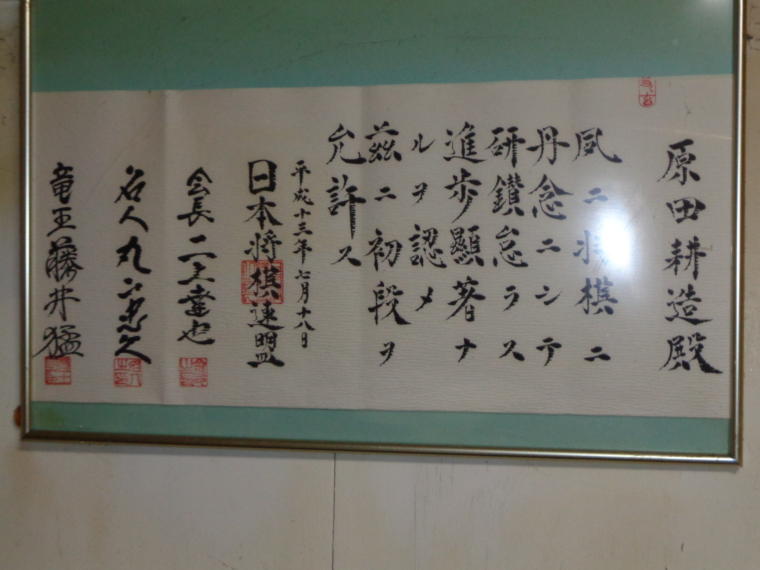 原田耕造殿
夙ニ将棋ニ
丹念ニシテ
研鑚怠ラス
進歩顯著ナ
ルヲ認メ
茲ニ初段ヲ
允許ス
平成十三年七月十八日
日本将棋連盟
会長 二上達也
名人 丸山忠久
竜王 藤井猛